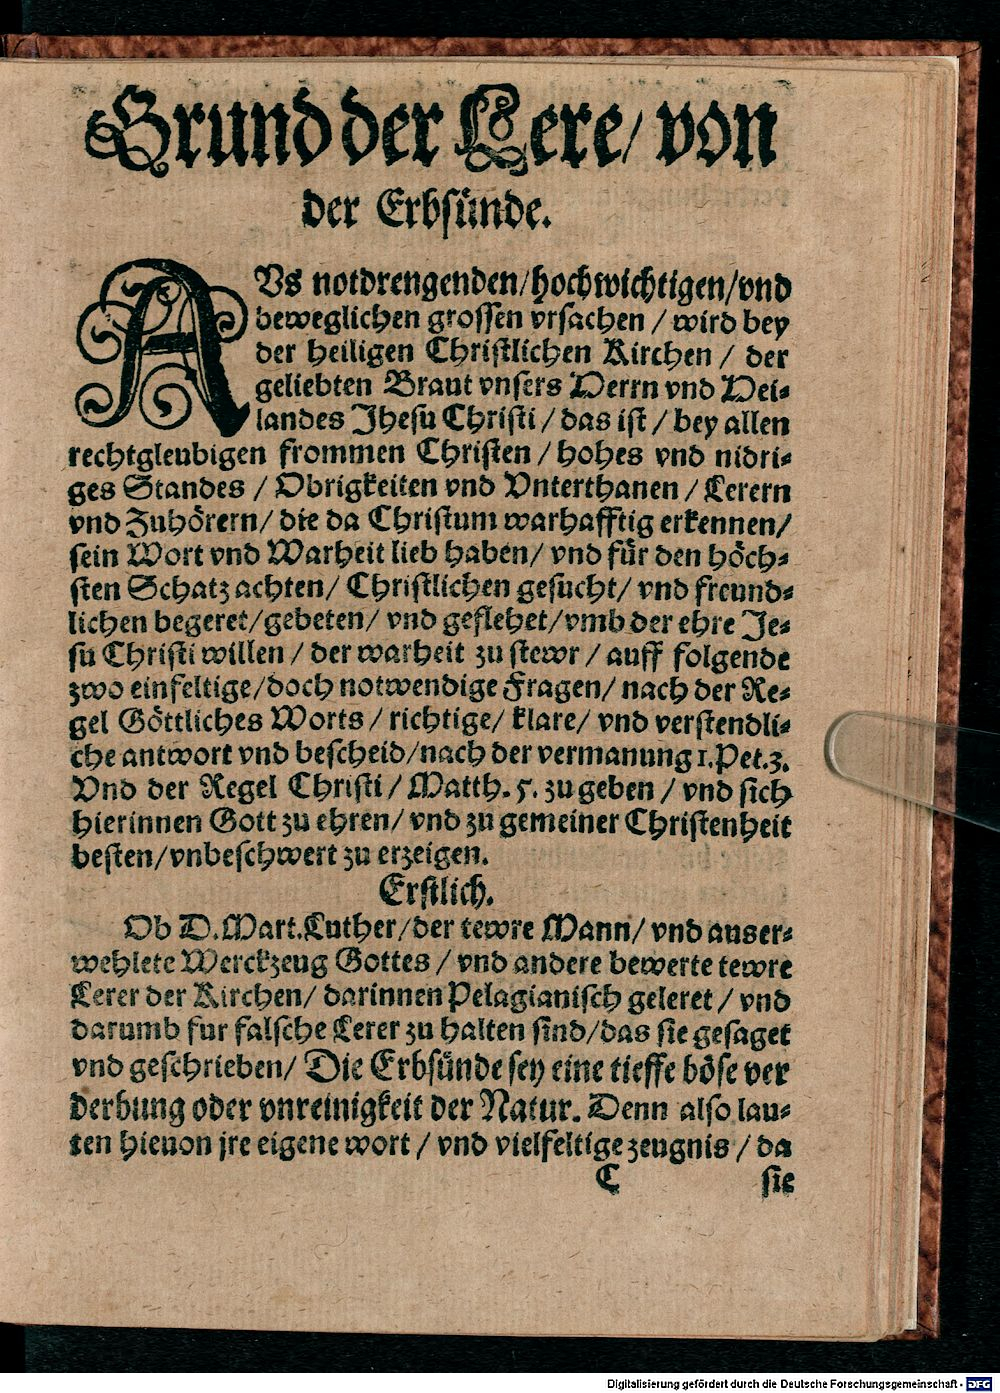 Grund der Lere/ von
der Erbsünde.
AVs notdrengenden/hochwichtigen/vnd
beweglichen grossen vrsachen / wird bey
der heiligen Christlichen Kirchen / der
geliebten Braut vnsers Herrn vnd Hei-
landes Jhesu Christi / das ist / bey allen
rechtgleubigen frommen Christen / hohes vnd nidri-
ges Standes / Obrigkeiten vnd Vnterthanen / Lerern
vnd Zuhörern/ die da Christum warhafftig erkennen/
sein Wort vnd Warheit lieb haben/ vnd für den höch-
sten Schatz achten/ Christlichen gesucht/ vnd freund-
lichen begeret/gebeten/ vnd geflehet/vmb der ehre Je-
su Christi willen / der warheit zu stewr / auff folgende
zwo einfeltige/doch notwendige Fragen/ nach der Re-
gel Göttliches Worts / richtige/ klare/ vnd verstendli-
che antwort vnd bescheid/nach der vermanung 1.Pet.3.
Vnd der Regel Christi / Matth. 5. zu geben / vnd sich
hierinnen Gott zu ehren/ vnd zu gemeiner Christenheit
besten/vnbeschwert zu erzeigen.
Erstlich.
Ob D.Mart.Luther/der tewre Mann/ vnd auser-
wehlete Werckzeug Gottes / vnd andere bewerte tewre
Lerer der Kirchen/ darinnen Pelagianisch geleret / vnd
darumb fur falsche Lerer zu halten sind/das sie gesaget
vnd geschrieben/ Die Erbsünde sey eine tieffe böse ver
derbung oder vnreinigkeit der Natur. Denn also lau-
ten hieuon jre eigene wort / vnd vielfeltige zeugnis / da
C sie
Digitalisierung gefördert durch die Deutsche Forschungsgemeinschaft - DFG